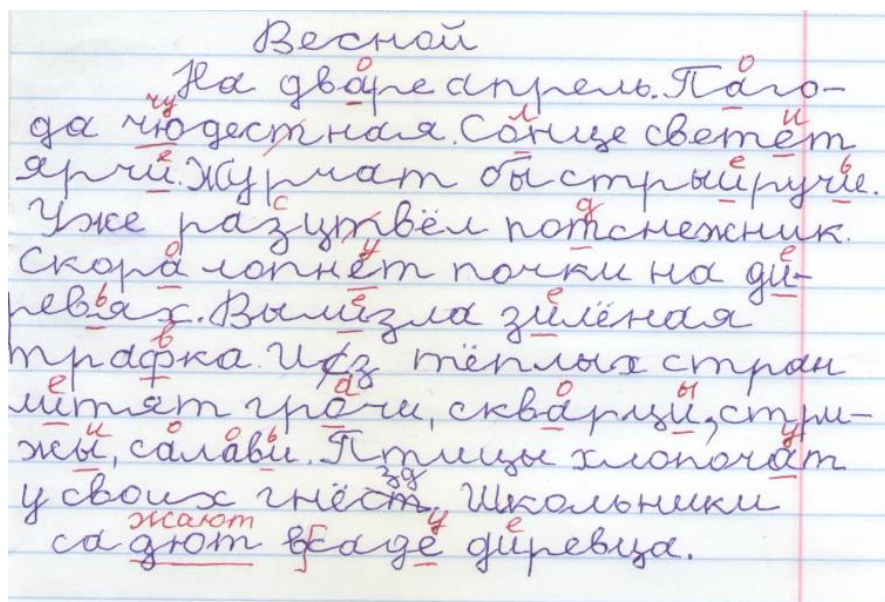 Весной
о о
На дваре апрель. Паго-
чу л и
да чюдестная. Сонце светет
е е ь
ярчи. Журчат быстрыи ручи.
с д
Уже разцтвёл потснежник.
о у е
Скора лопнет почки на ди-
ь е е
ревях. Вылизла зилёная
в
трафка. Исз тёплых стран
е а о ы
литят грочи, скварци, стри-
и о о ь у
жы, салави. Птицы хлопочат
зд
у своих гнёст. Школьники
жают у е
садют всаде диревца.